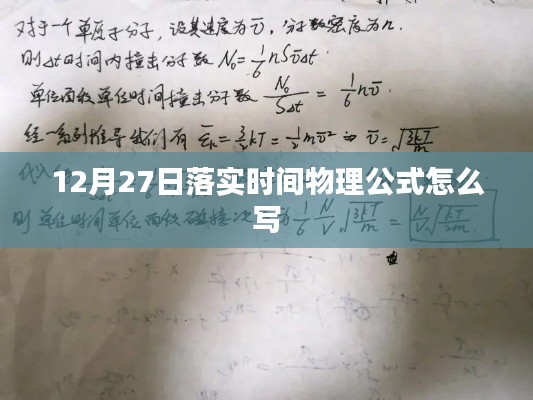 对于一个单原子分子,设其速度为v̄,分子数密度为n.
则Δt时间内撞击分子数 N₀=1/6 nSv̄Δt
单位面积单位时间撞击分子数 N₀/SΔt = 1/6 nv̄
经一系列推导我们有 ε̄ₖ=3/2kT=1/2mv̄² ⇒ v̄=√3kT/m
12月27日落实时间物理公式怎么
写
则单位时间单位面积碰撞次 1/6 N/V √3kT/m = N/V √kT/m